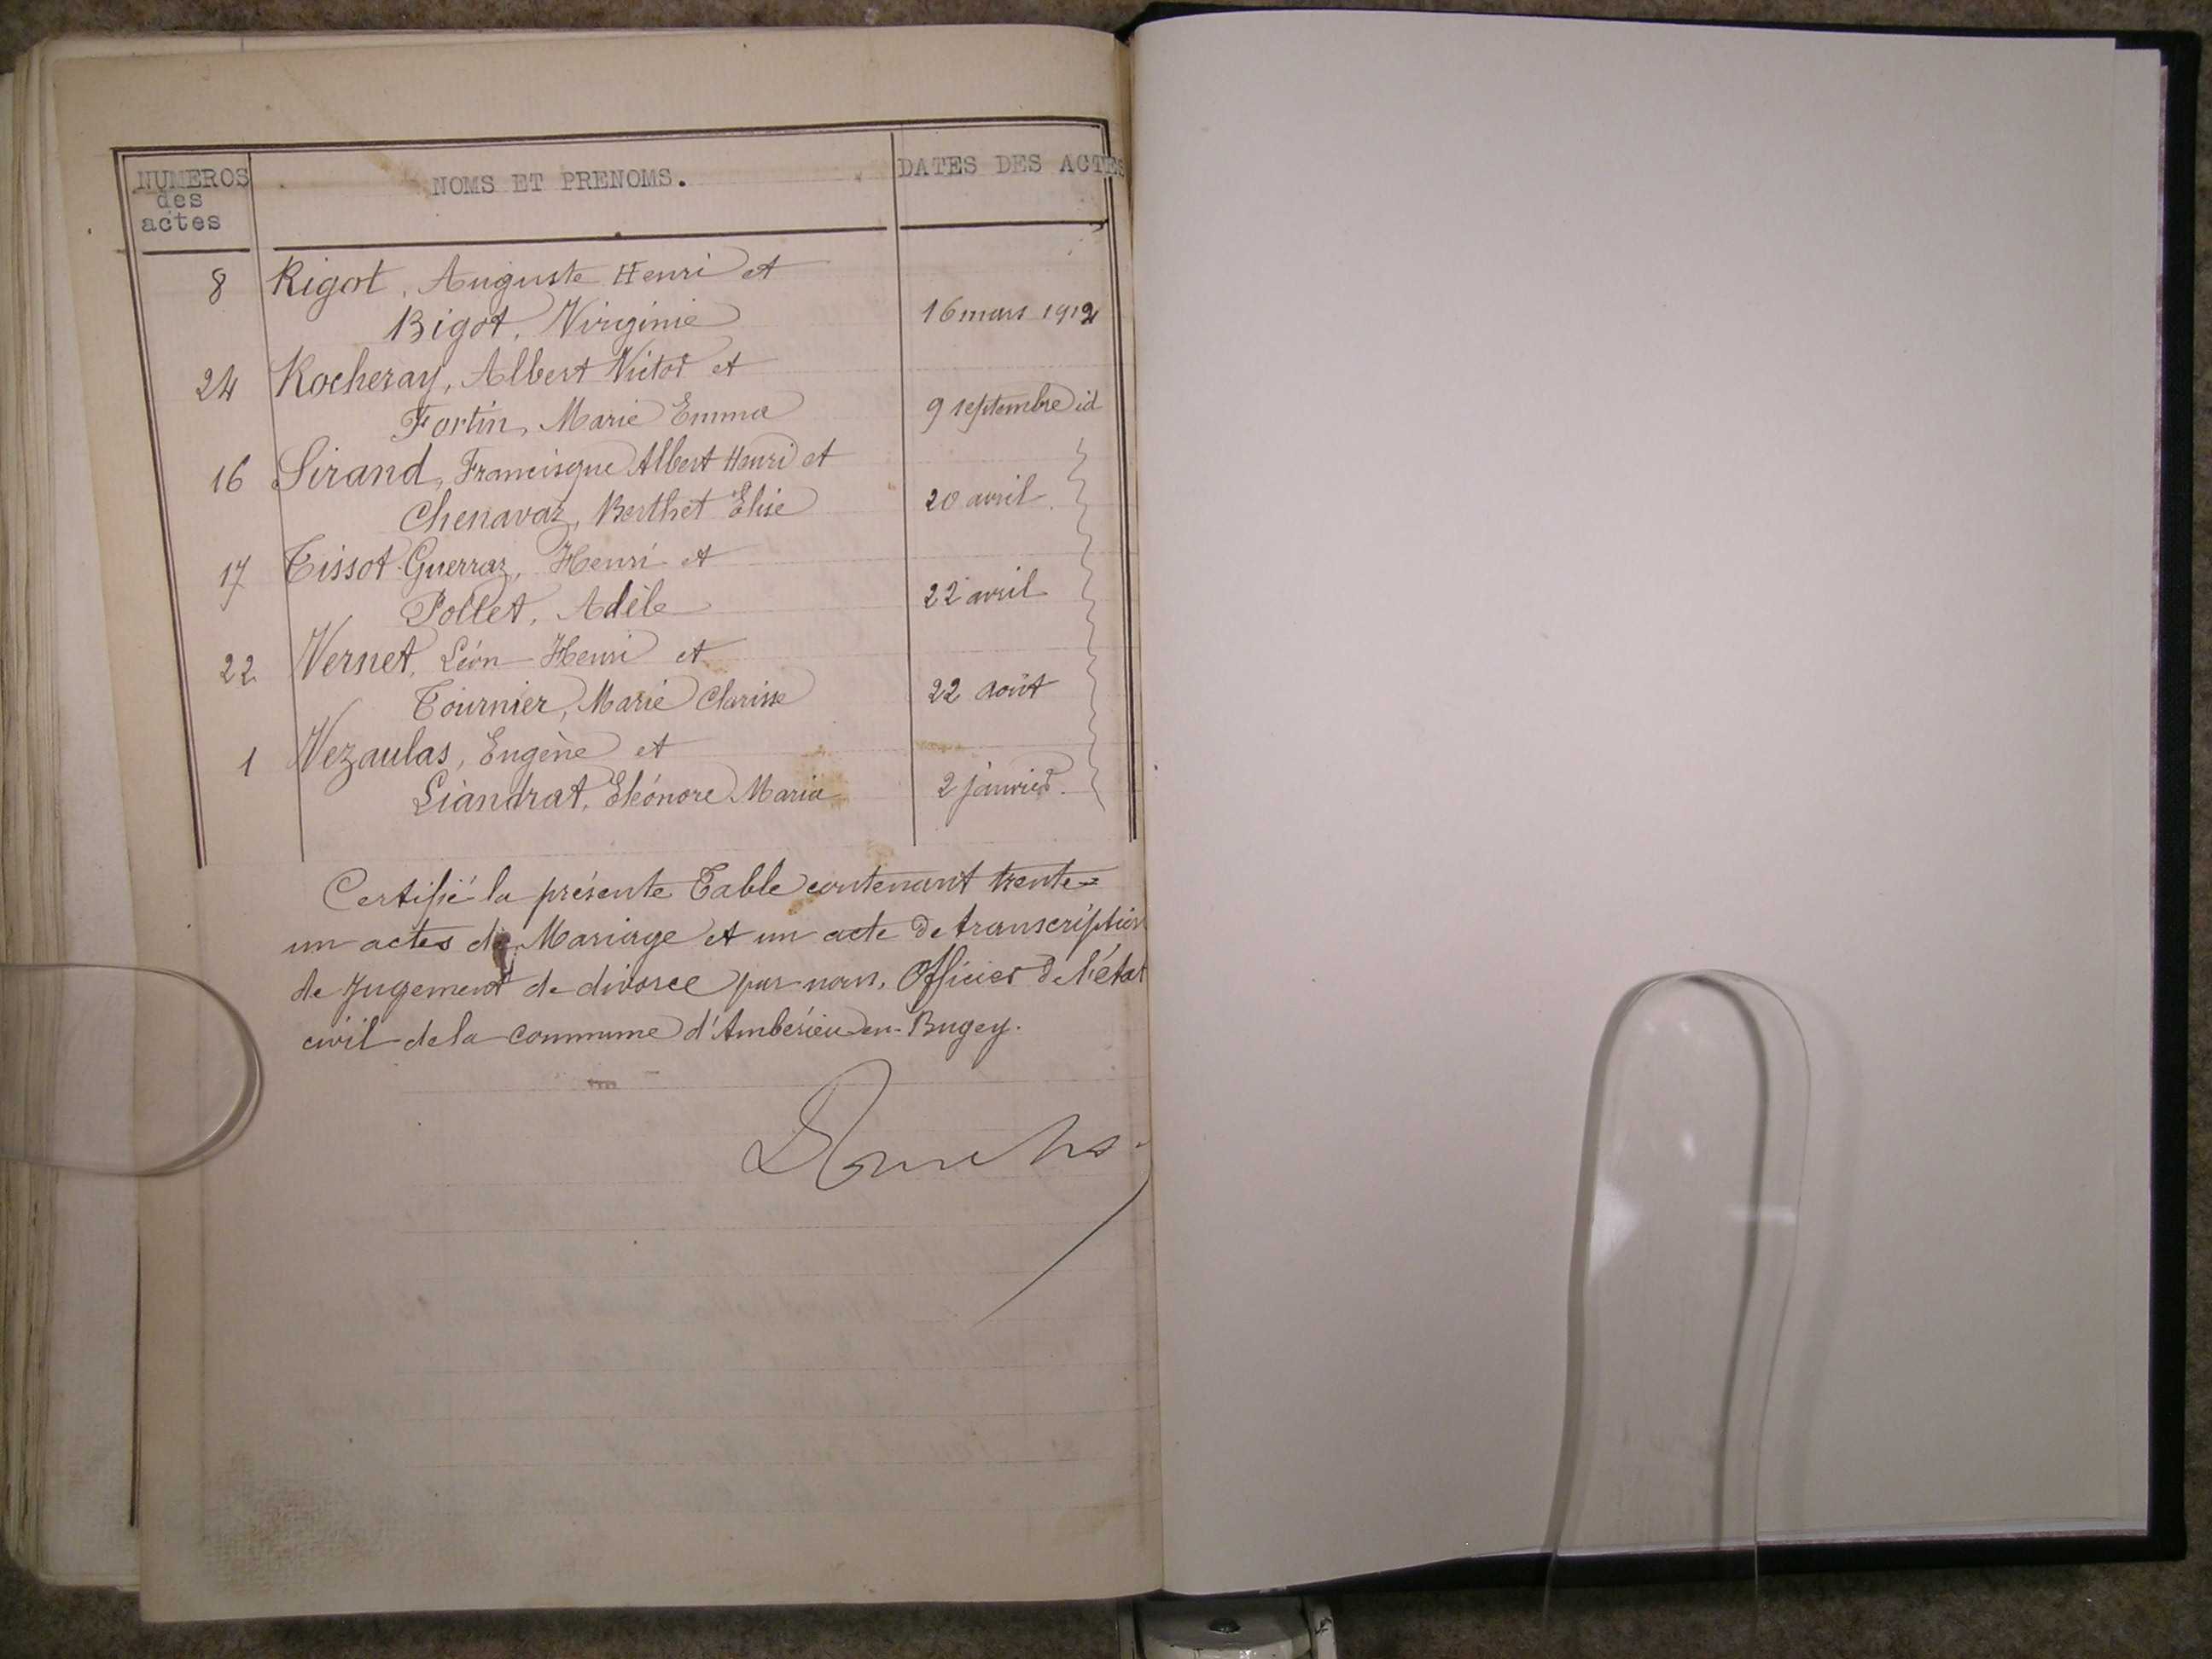 NUMEROS
des
actes
NOMS ET PRENOMS.
DATES DES ACTES
8 Rigot, Auguste Henri et
Bigot, Virginie 16 mars 1912
24 Rocheray, Albert Victor et
Fortin, Marie Emma 9 septembre id
16 Sirand, Francisque Albert Henri et
Chenavaz, Berthet Elise 20 avril.
17 Tissot-Guerraz, Henri et
Pollet, Adèle 22 avril
22 Vernet, Léon Henri et
Tournier, Marie Clarisse 22 août
1 Vezaulas, Eugène et
Liandrat, Eléonore Maria 2 janvier.
Certifié la présente Table contenant trente-
un actes de Mariage et un acte de transcription
de Jugement de divorce par nous, Officier de l'état
civil de la commune d'Ambérieu-en-Bugey.